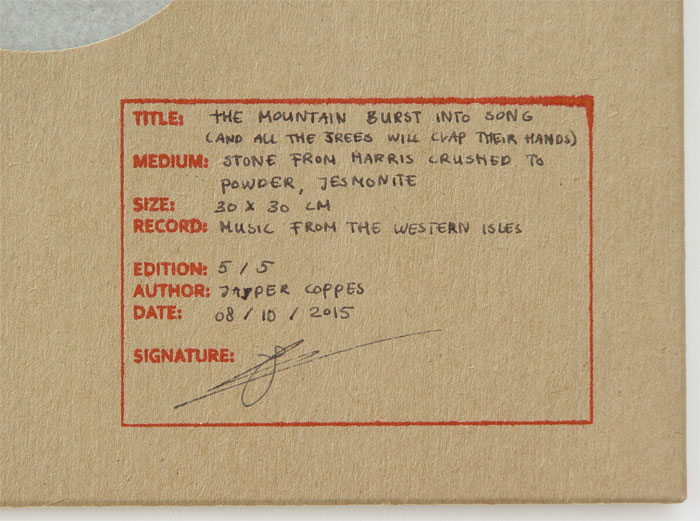 TITLE: THE MOUNTAIN BURST INTO SONG
(AND ALL THE TREES WILL CLAP THEIR HANDS)
MEDIUM: STONE FROM HARRIS CRUSHED TO
POWDER, JESMONITE
SIZE: 30 X 30 CM
RECORD: MUSIC FROM THE WESTERN ISLES
EDITION: 5 / 5
AUTHOR: JASPER COPPES
DATE: 08 / 10 / 2015
SIGNATURE: